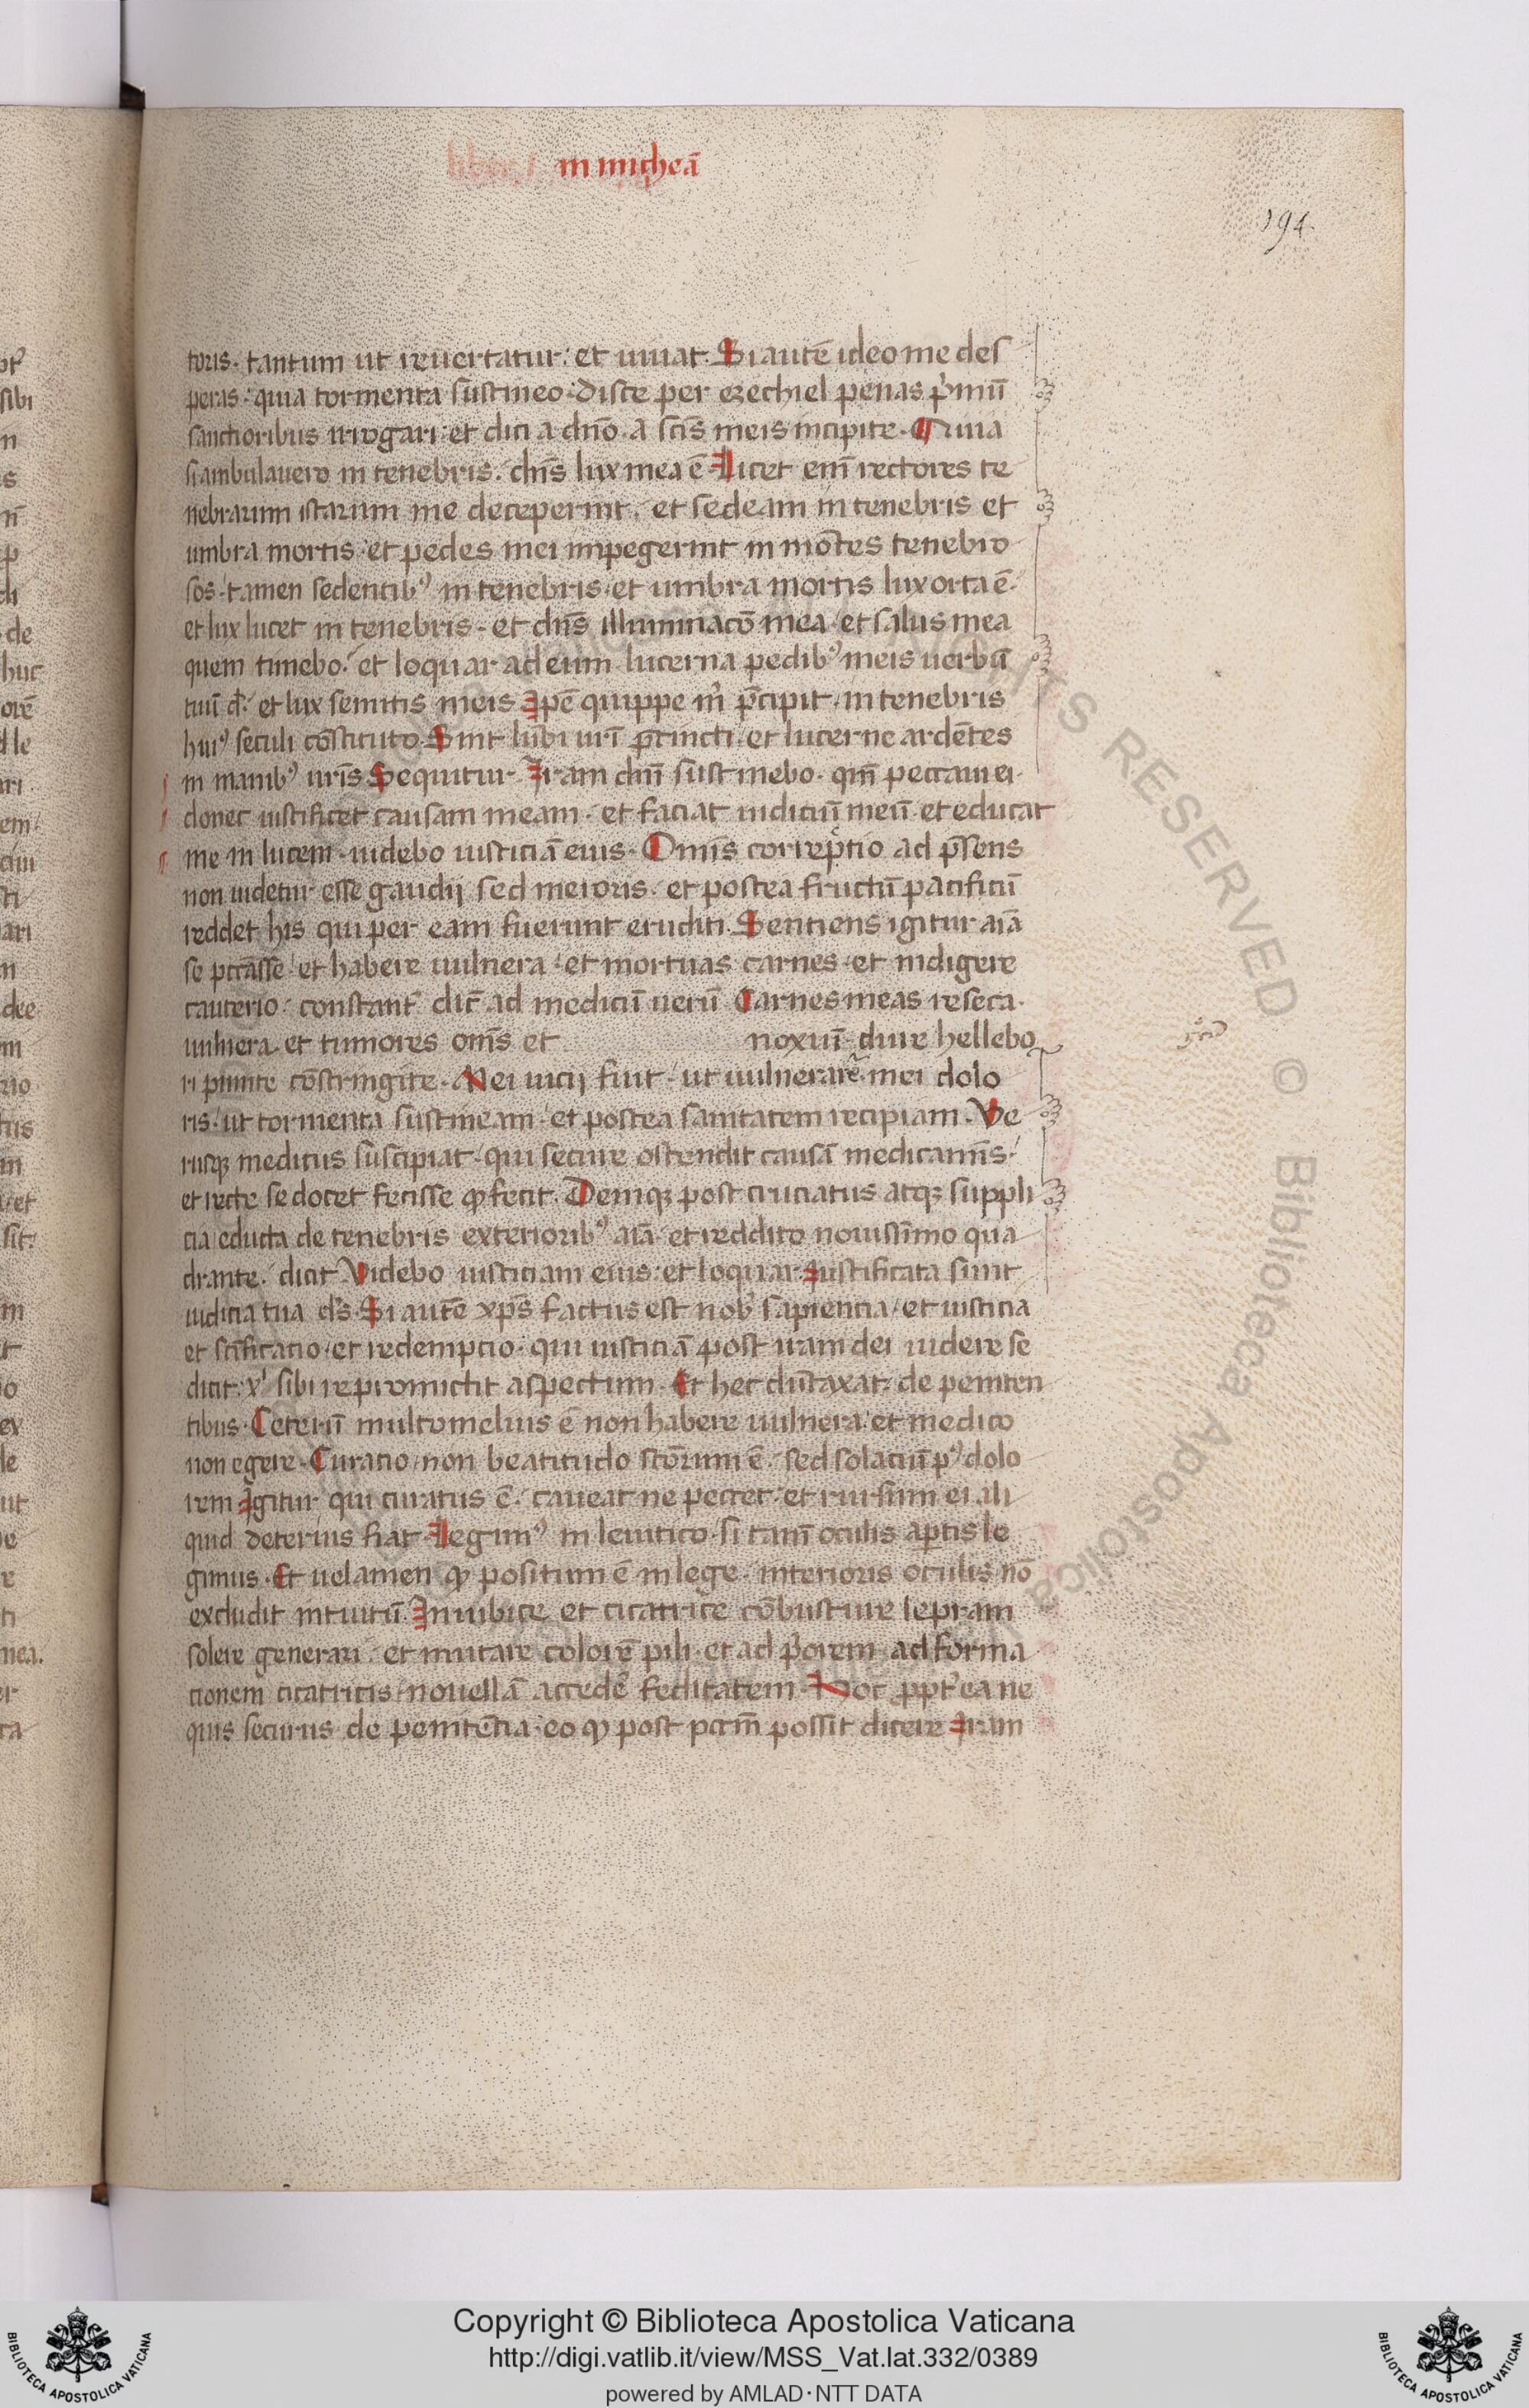 liber in micheā
194
toris· tantum ut reuertatur· et uiuat· Si autē ideo me des
peras· quia tormenta sustineo· disce per ezechiel penas p̄mū
sanctioribus irrogari· et dici a dn̄o· a sc̄is meis incipite· Quia
si ambulauero in tenebris· dn̄s lux mea ē Licet eni̅ rectores te
nebrarum istarum me deceperint· et sedeam in tenebris et
umbra mortis· et pedes mei impegerint in mōtes tenebro
sos· tamen sedentibꝰ in tenebris· et umbra mortis lux orta ē·
et lux lucet in tenebris· et dn̄s illuminacō mea· et salus mea
quem timebo· et loquar ad eum· lucerna pedibꝰ meis uerbū
tuū et lux semitis meis Ip̄e quippe m̄ p̄cipit· in tenebris
huiꝰ seculi cōstituto Sint lūbi ur̄i p̄cincti· et lucerne ardētes
in manibꝰ ur̄is Sequitur· Iram dn̄i sustinebo· qm̄ peccaui ei·
donec iustificet causam meam· et faciat iudiciū meū· et educat
me in lucem· uidebo iusticiā eius· Omīs correptio ad p̄sens
non uidetur esse gaudij sed meroris· et postea fructū pacificū
reddet his qui per eam fuerunt eruditi· Sentiens igitur aīa
se pccāsse· et habere uulnera· et mortuas carnes· et indigere
cauterio· constant̄ dic̄ ad medicū uerū Carnes meas reseca·
uulnera· et tumores om̄s et noxiū· diure hellebo
ri piunte cōstringite· Mei uicij fuit· ut uulnerarer̄· mei dolo
ris· ut tormenta sustineam· et postea sanitatem recipiam· Ve
rusqꝫ medicus suscipiat· qui secure ostendit causā medicamīs·
et recte se docet fecisse ꝙ fecit· Deniqꝫ post cruciatus atqꝫ suppli
cia educta de tenebris exteriorib⁹ aīa· et reddito nouissimo qua
drante· dicit Videbo iusticiam eius· et loquar· Iustificata sunt
iudicia tua ds̄ Si autē xp̄s factus est nob̄ sapiencia· et iusticia
et sc̄ificatio· et redempcio· qui iusticiā post iram dei uidere se
dicit· xp̄i sibi repromictit aspectum· Et hec dūtaxat· de peniten
tibus· Ceterū multo melius ē non habere uulnera· et medico
non egere· Curatio· non beatitudo sc̄orum ē· sed solaciū p⁹ dolo
rem Igitur qui curatus ē· caueat ne peccet· et rursum ei ali
quid deterius fiat· Legimꝰ in leuitico· si tam̄ oculis aptis le
gimus· Et uelamen ꝙ positum ē in lege· interioris oculis nō
excludit intuitū· In uibice et cicatrice cōbusture lepram
solere generari· et mutare colorē pili· et ad p̄orem ad forma
cionem cicatricis· nouellā accedē feditatem· Hoc ꝓpt̄ea ne
quis securus de penitēcia· eo ꝙ post pccm̄ possit dicere Iram
Copyright © Biblioteca Apostolica Vaticana
http://digi.vatlib.it/view/MSS_Vat.lat.332/0389
powered by AMLAD·NTT DATA